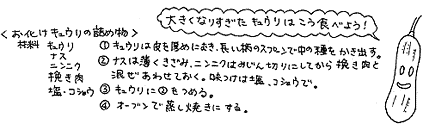 大きくなりすぎた キュウリは こう食べよう！
＜お化けキュウリの詰め物＞
材料 キュウリ ① キュウリは皮を厚めにむき、長い柄のスプーンで中の種をかき出す。
ナス ② ナスは薄くきざみ、ニンニクはみじん切りにしてから 挽き肉と
ニンニク 混ぜあわせておく。味つけは塩、コショウで。
挽き肉 ③ キュウリに②をつめる。
塩・コショウ ④ オーブンで蒸し焼きにする。